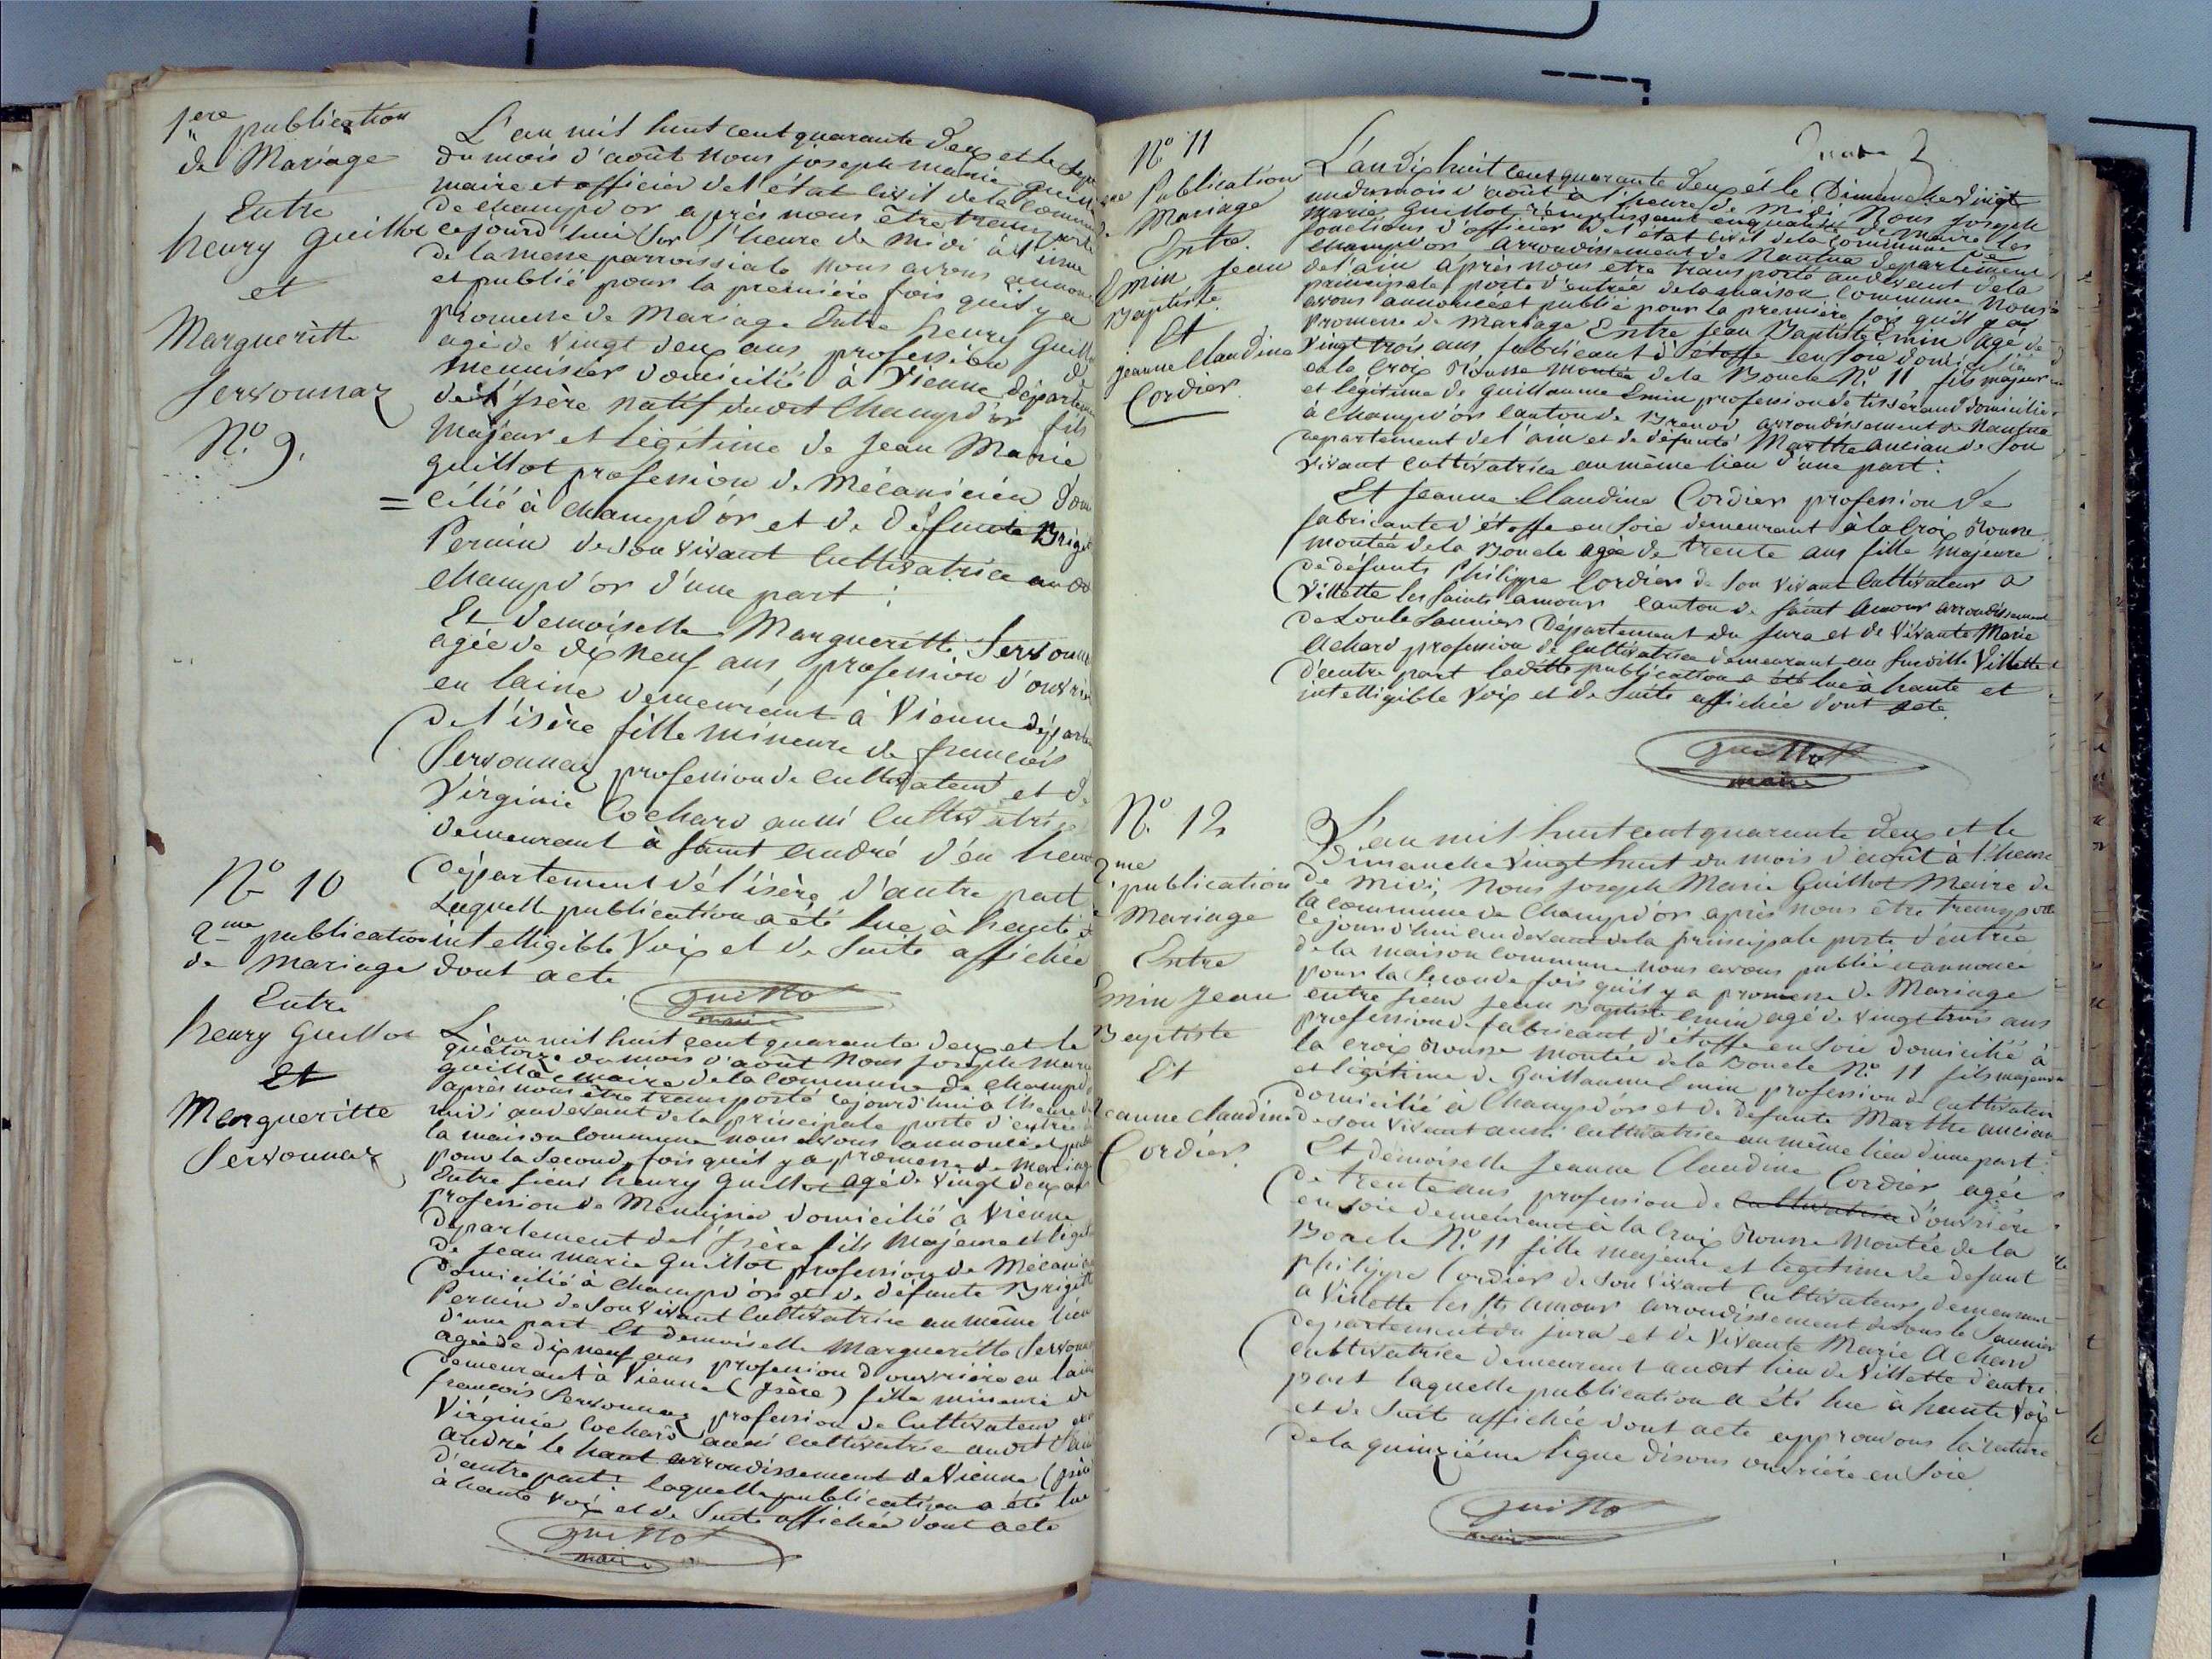 1ere publication
de Mariage
Entre
henry Guillot
et
Margueritte
Servonnaz
N° 9.
L'an mil huit cent quarante deux et le sept
du mois d'août nous joseph marie guillot
maire et officier de l'état civil de la commune
de champd'or après nous être transporté
cejourd'hui sur l'heure de midi à l'issue
de la messe parroissiale nous avons annoncé
et publié pour la première fois qu'il y a
promesse de Mariage Entre henry Guillot
agé de vingt deux ans profession de
menuisier domicilié à Vienne départem
de l'isère natif dudit Champd'or fils
majeur et légitime de Jean Marie
guillot profession de Mécanicien dom
= cilié à champd'or et de défunte Brigit
Pernin de son vivant Cultivatrice au dt
champd'or d'une part :
Et demoiselle Margueritte Servonna
agée de dix neuf ans profession d'ouvriè
en laine demeurant à Vienne départ
de l'isère fille mineure de françois
Servonnaz profession de Cultivateur et de
Virginie Cochard aussi Cultivatrice
demeurant à saint andré d'en haut
département de l'isère d'autre part
Laquelle publication a été lue à haute et
intelligible Voix et de suite affichée
dont acte
Guillot
maire
N° 10
2me publication
de Mariage
Entre
henry Guillot
Et
Margueritte
Servonnaz
L'an mil huit cent quarante deux et le
quatorze du mois d'août nous joseph marie
guillot maire de la commune de champd'or
après nous être transporté cejourd'hui à l'heure de
midi au devant de la principale porte d'entrée de
la maison commune nous avons annoncé et publié
pour la seconde fois qu'il y a promesse de mariage
Entre sieur henry Guillot agé de vingt deux ans
profession de Menuisier domicilié a Vienne
département de l'isère fils Majeur et légit
de jean marie Guillot profession de Mécanicien
domicilié à champd'or et de défunte Brigitte
Pernin de son vivant Cultivatrice au même lieu
d'une part Et demoiselle Margueritte Servonnaz
agée de dix neuf ans profession d'ouvrière en laine
demeurant à Vienne (isère) fille mineure de
françois Servonnaz profession de Cultivateur et de
Virginie Cochard aussi Cultivatrice audit Saint
andré le haut arrondissement de Vienne (isère)
d'autre part : laquelle publication a été lue
à haute Voix et de suite affichée dont acte
Guillot
maire
N° 11
Publication
Mariage
Entre
Emin Jean
Baptiste
Et
jeanne Claudine
Cordier
L'an dix huit cent quarante deux et le Dimanche vingt
un du mois d'août à l'heure de midi Nous Joseph
Marie Guillot remplissant en qualité de maire les
fonctions d'officier de l'état civil de la Commune de
Champd'or arrondissement de Nantua département
de l'ain après nous etre transporté au devant de la
principale porte d'entrée de la maison commune Nous
avons annoncé et publié pour la première fois qu'il y a
promesse de Mariage Entre jean Baptiste Emin agé de
vingt trois ans fabricant d'étoffe en soie domicilié
à la Croix Rousse Montée de la Boucle N° 11 fils majeur
et légitime de Guillaume Emin profession de tisserand domicilié
à Champd'or Canton de Brenod arrondissement de Nantua
departement de l'ain et de défunte Marthe ancian de son
vivant cultivatrice au même lieu d'une part :
Et Jeanne Claudine Cordier profession de
fabricante d'étoffe en soie demeurant à la Croix Rousse
montée de la Boucle agée de trente ans fille majeure
de défunts Philippe Cordier de son vivant Cultivateur a
Villette les saints amour Canton de Saint Amour arrondissement
de Lonle Saunier Département du Jura et de Vivante Marie
Achard profession de Cultivatrice demeurant au susdit Villette
d'autre part ladite publication a été lue à haute et
intelligible Voix et de suite affichée dont acte.
Guillot
maire
N° 12
2me
publication
Mariage
Entre
Emin Jean
Baptiste
Et
Jeanne Claudine
Cordier
L'an mil huit cent quarante deux et le
Dimanche vingt huit du mois d'août à l'heure
de midi, Nous joseph Marie Guillot Maire de
la commune de Champd'or après nous être transporté
cejourd'hui au devant de la principale porte d'entrée
de la maison commune nous avons publié et annoncé
pour la seconde fois qu'il y a promesse de Mariage
entre sieur jean Baptiste Emin agé de vingt trois ans
profession de fabricant d'étoffe en soie domicilié à
la croix Rousse montée de la Boucle N° 11 fils majeur
et légitime de Guillaume Emin profession de Cultivateur
domicilié à Champd'or et de défunte Marthe ancian
de son vivant aussi Cultivatrice au même lieu d'une part.
Et demoiselle Jeanne Claudine Cordier agée
de trente ans profession de cultivatrice d'ouvrière
en soie demeurant à la Croix Rousse Montée de la
Boucle N° 11 fille majeure et légitime de defunt
philippe Cordier de son vivant Cultivateur, demeurant
a Villette les sts amour arrondissement de Lons le Saunier
departement du jura et de vivante Marie Achard
cultivatrice demeurant audit lieu de Villette d'autre
part laquelle publication a été lue à haute Voix
et de suite affichée dont acte approuvons la rature
de la quinzième ligne disons ouvrière en soie
Guillot
maire